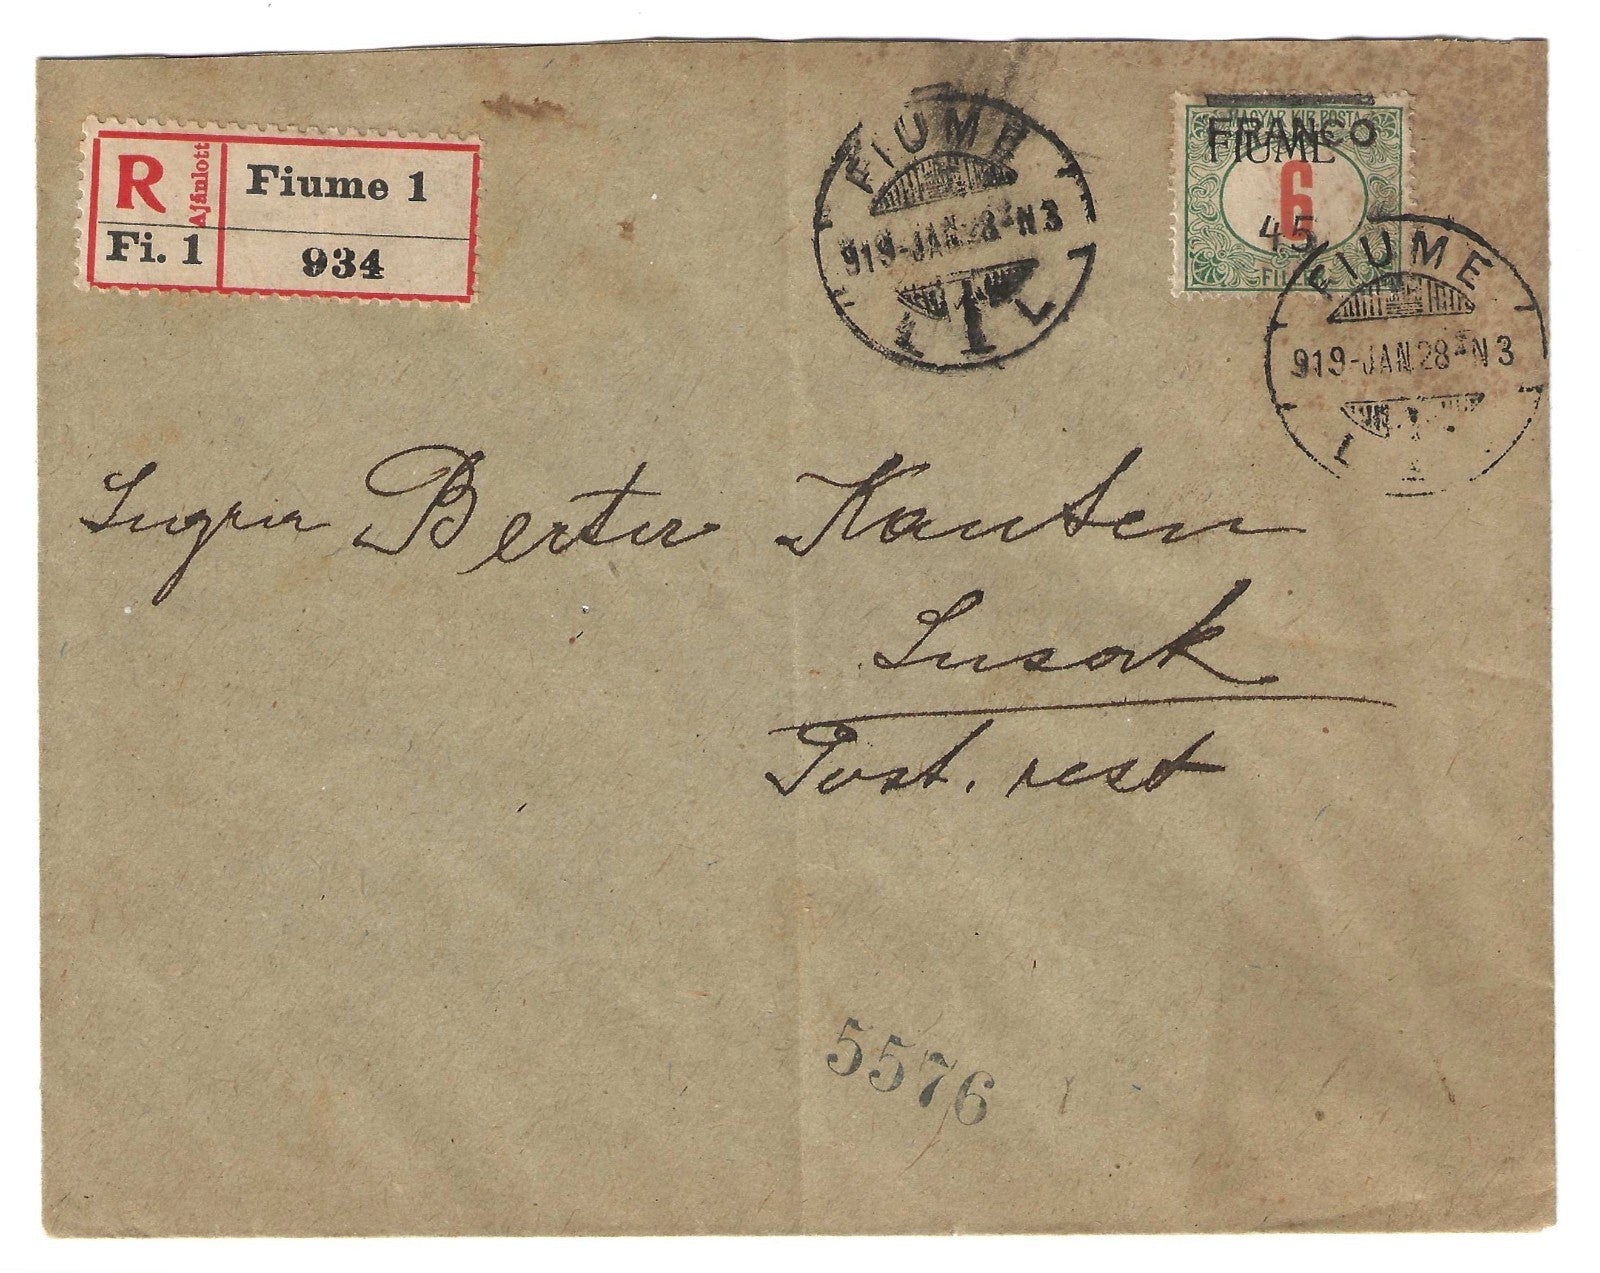 R Ajánlott Fiume 1
Fi. 1 934
FIUME
919-JAN.28-N3
1 L
MAGYAR KIR. POSTA
FRANCO
FIUME
6
45
FIUME
919-JAN.28-N3
1
Berta
Susak
Post. rest
5576